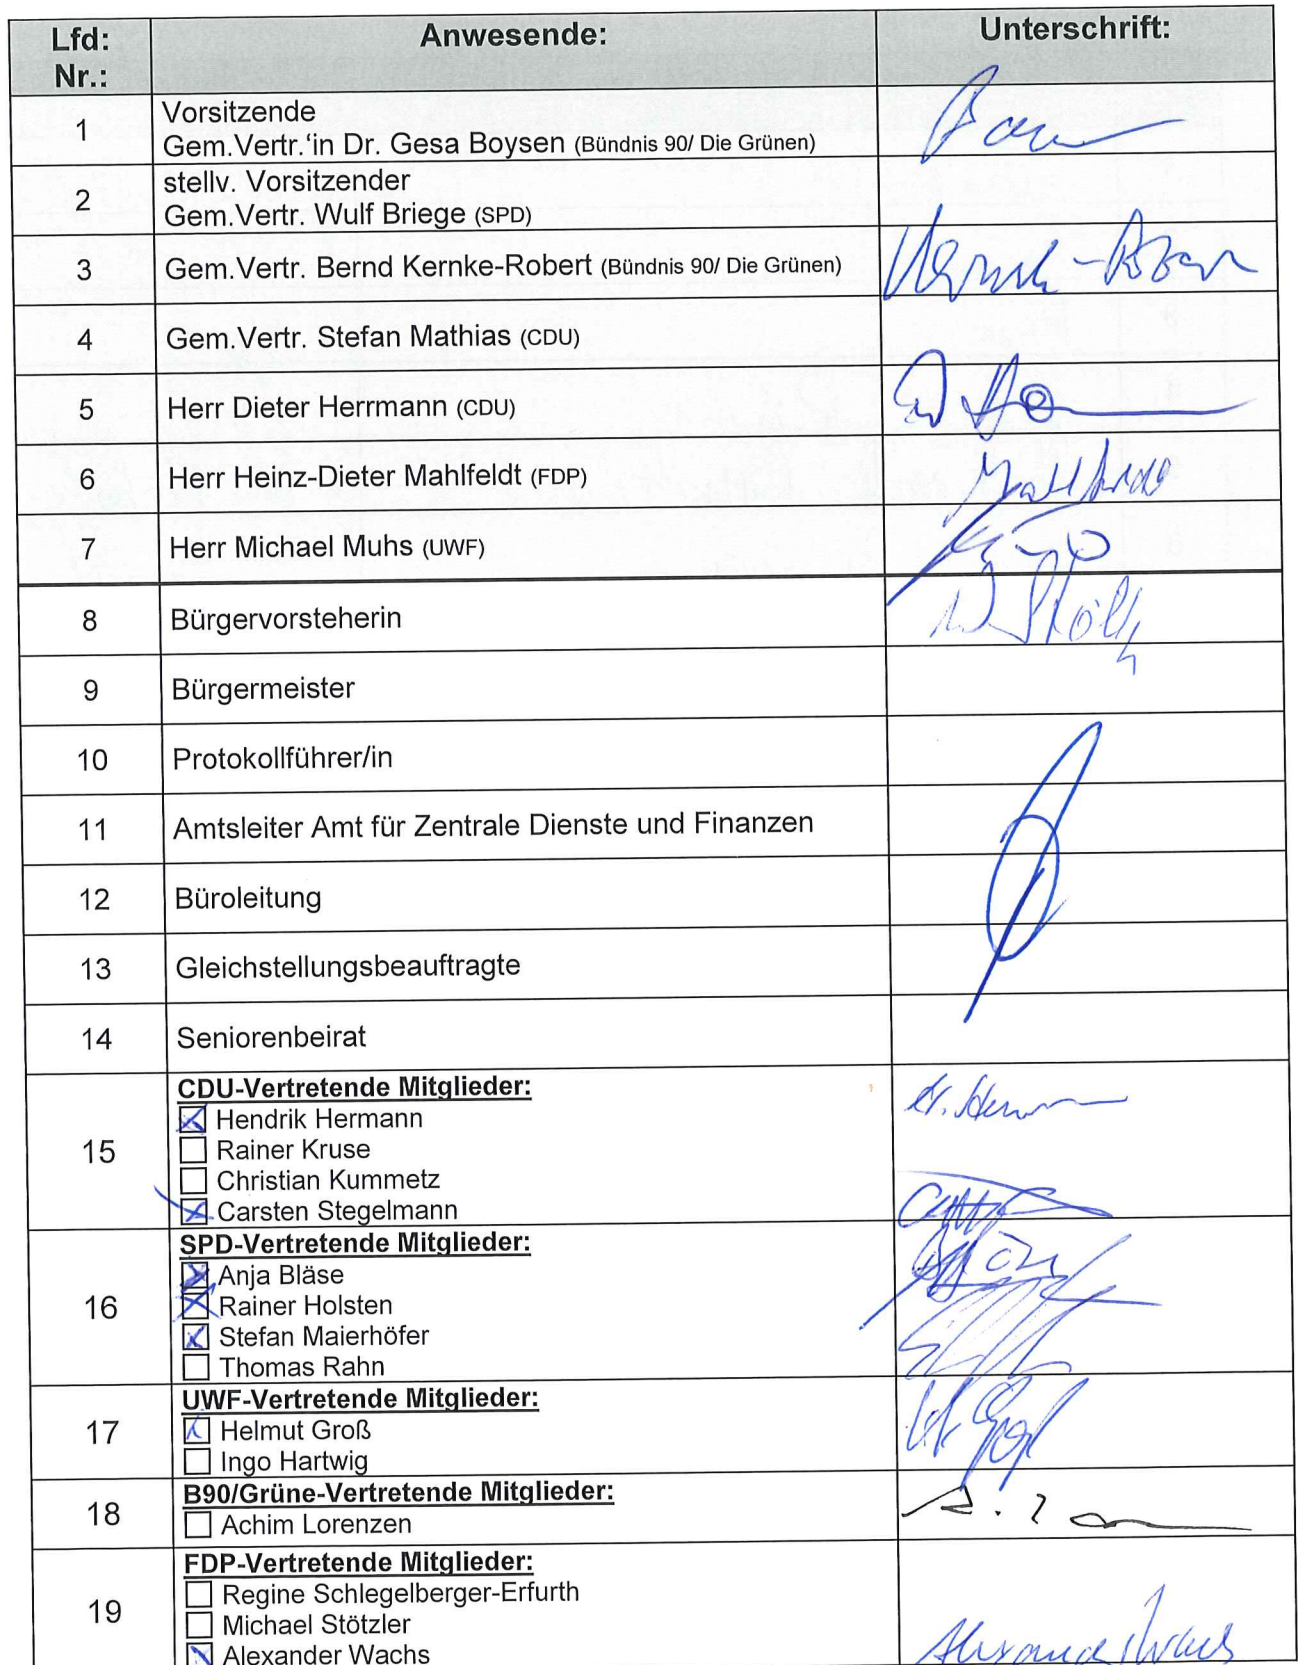 Lfd: Nr.: Anwesende: Unterschrift:
1 Vorsitzende
Gem.Vertr.'in Dr. Gesa Boysen (Bündnis 90/ Die Grünen)
2 stellv. Vorsitzender
Gem.Vertr. Wulf Briege (SPD)
3 Gem.Vertr. Bernd Kernke-Robert (Bündnis 90/ Die Grünen)
4 Gem.Vertr. Stefan Mathias (CDU)
5 Herr Dieter Herrmann (CDU)
6 Herr Heinz-Dieter Mahlfeldt (FDP)
7 Herr Michael Muhs (UWF)
8 Bürgervorsteherin
9 Bürgermeister
10 Protokollführer/in
11 Amtsleiter Amt für Zentrale Dienste und Finanzen
12 Büroleitung
13 Gleichstellungsbeauftragte
14 Seniorenbeirat
15 CDU-Vertretende Mitglieder:
Hendrik Hermann
Rainer Kruse
Christian Kummetz
Carsten Stegelmann
16 SPD-Vertretende Mitglieder:
Anja Bläse
Rainer Holsten
Stefan Maierhöfer
Thomas Rahn
17 UWF-Vertretende Mitglieder:
Helmut Groß
Ingo Hartwig
18 B90/Grüne-Vertretende Mitglieder:
Achim Lorenzen
19 FDP-Vertretende Mitglieder:
Regine Schlegelberger-Erfurth
Michael Stötzler
Alexander Wachs Alexander Wachs